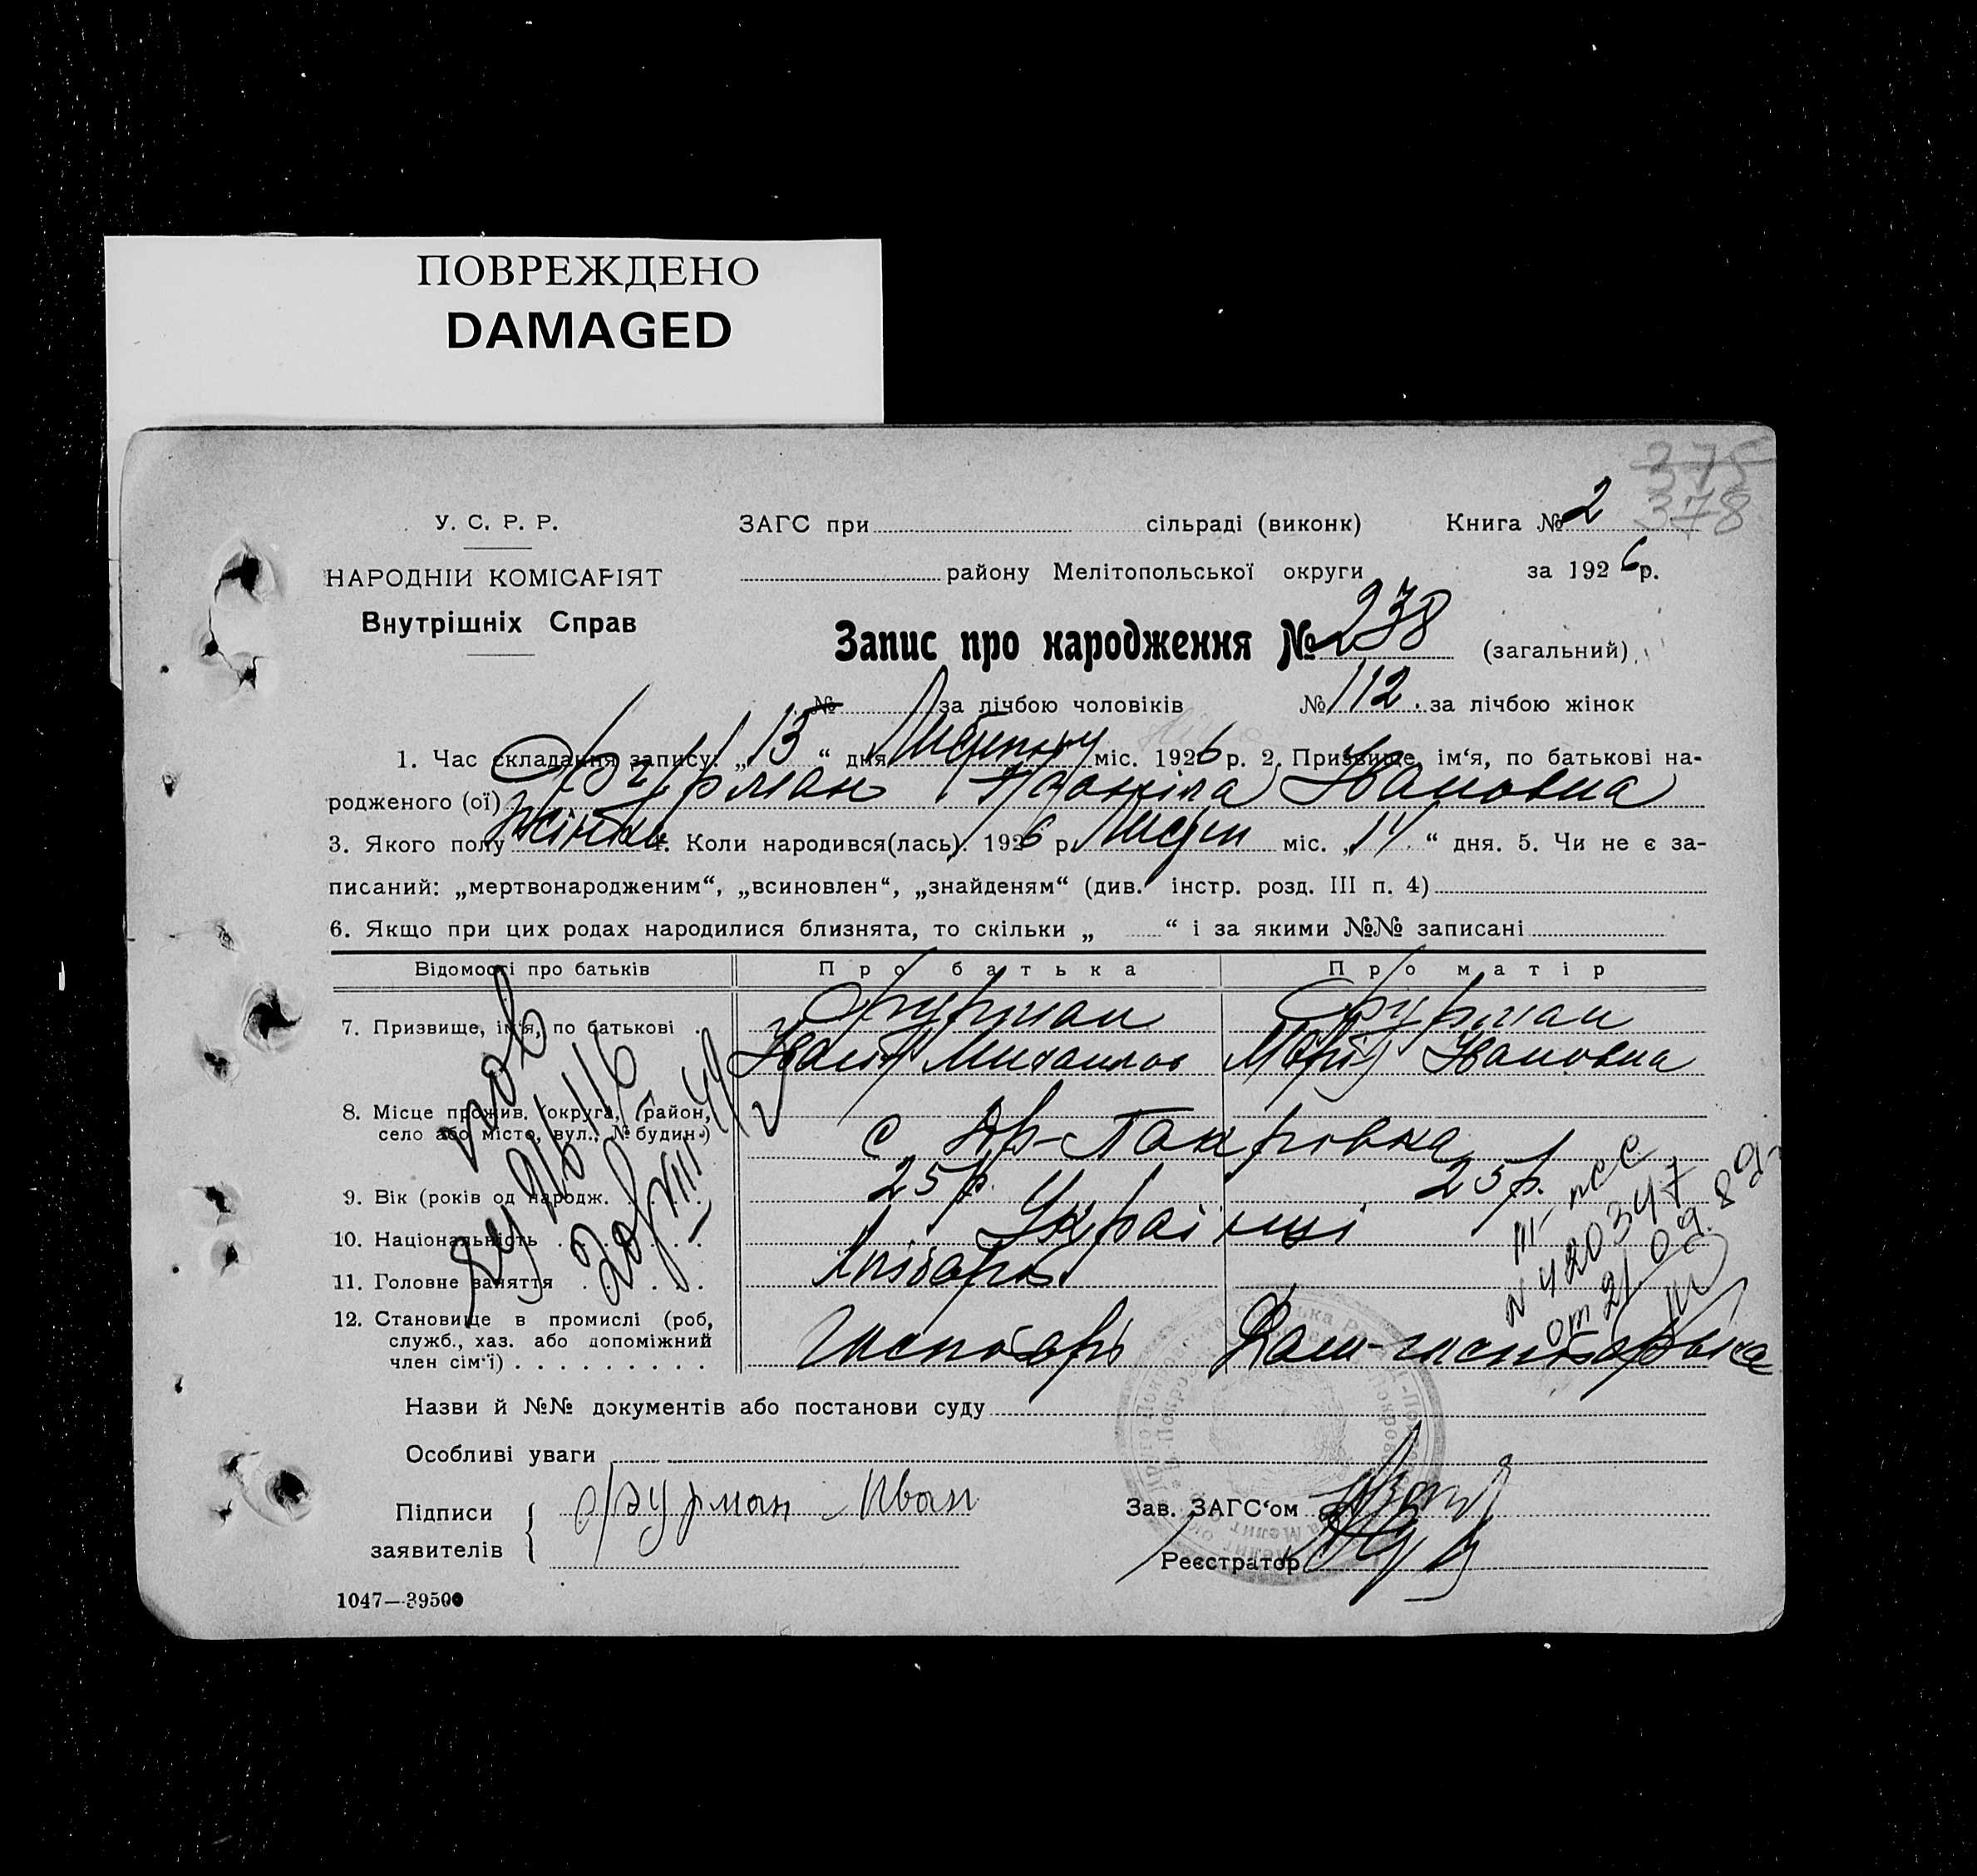 ПОВРЕЖДЕНО
DAMAGED
375
378
У. С. Р. Р.
ЗАГС при сільраді (виконк) Книга № 2
НАРОДНІЙ КОМІСАРІЯТ
району Мелітопольської округи за 1926 р.
Внутрішніх Справ
Запис про народження № 238 (загальний)
№ за лічбою чоловіків № 112. за лічбою жінок
1. Час складання запису: „ 13 “ дня міс. 1926 р. 2. Призвище, ім‘я, по батькові на-
родженого (ої) Фурман Іванов­на
3. Якого полу 4. Коли народився(лась). 1926 р. міс. „ 11 “ дня. 5. Чи не є за-
писаний: „мертвонародженим“, „всиновлен“, „знайденям“ (див. інстр. розд. III п. 4)
6. Якщо при цих родах народилися близнята, то скільки „ “ і за якими №№ записані
Відомості про батьків Про батька Про матір
7. Призвище, ім‘я, по батькові Фурман Фурман
Іван Михайлов Марія Івановна
8. Місце прожив. (округа, район,
село або місто, вул., № будин.) с Др-Покровка
9. Вік (років од народж. 25 р. 25 р.
10. Національність Українці
11. Головне заняття Хлібороб
12. Становище в промислі (роб,
служб., хаз. або допоміжний
член сім‘ї) Господарь Дом-господарька
пов
III-ПСС
№ 420347
от 21.09.82
Назви й №№ документів або постанови суду
Особливі уваги
Підписи Фурман Иван Зав. ЗАГС‘ом
заявителів Реєстратор
1047—39500